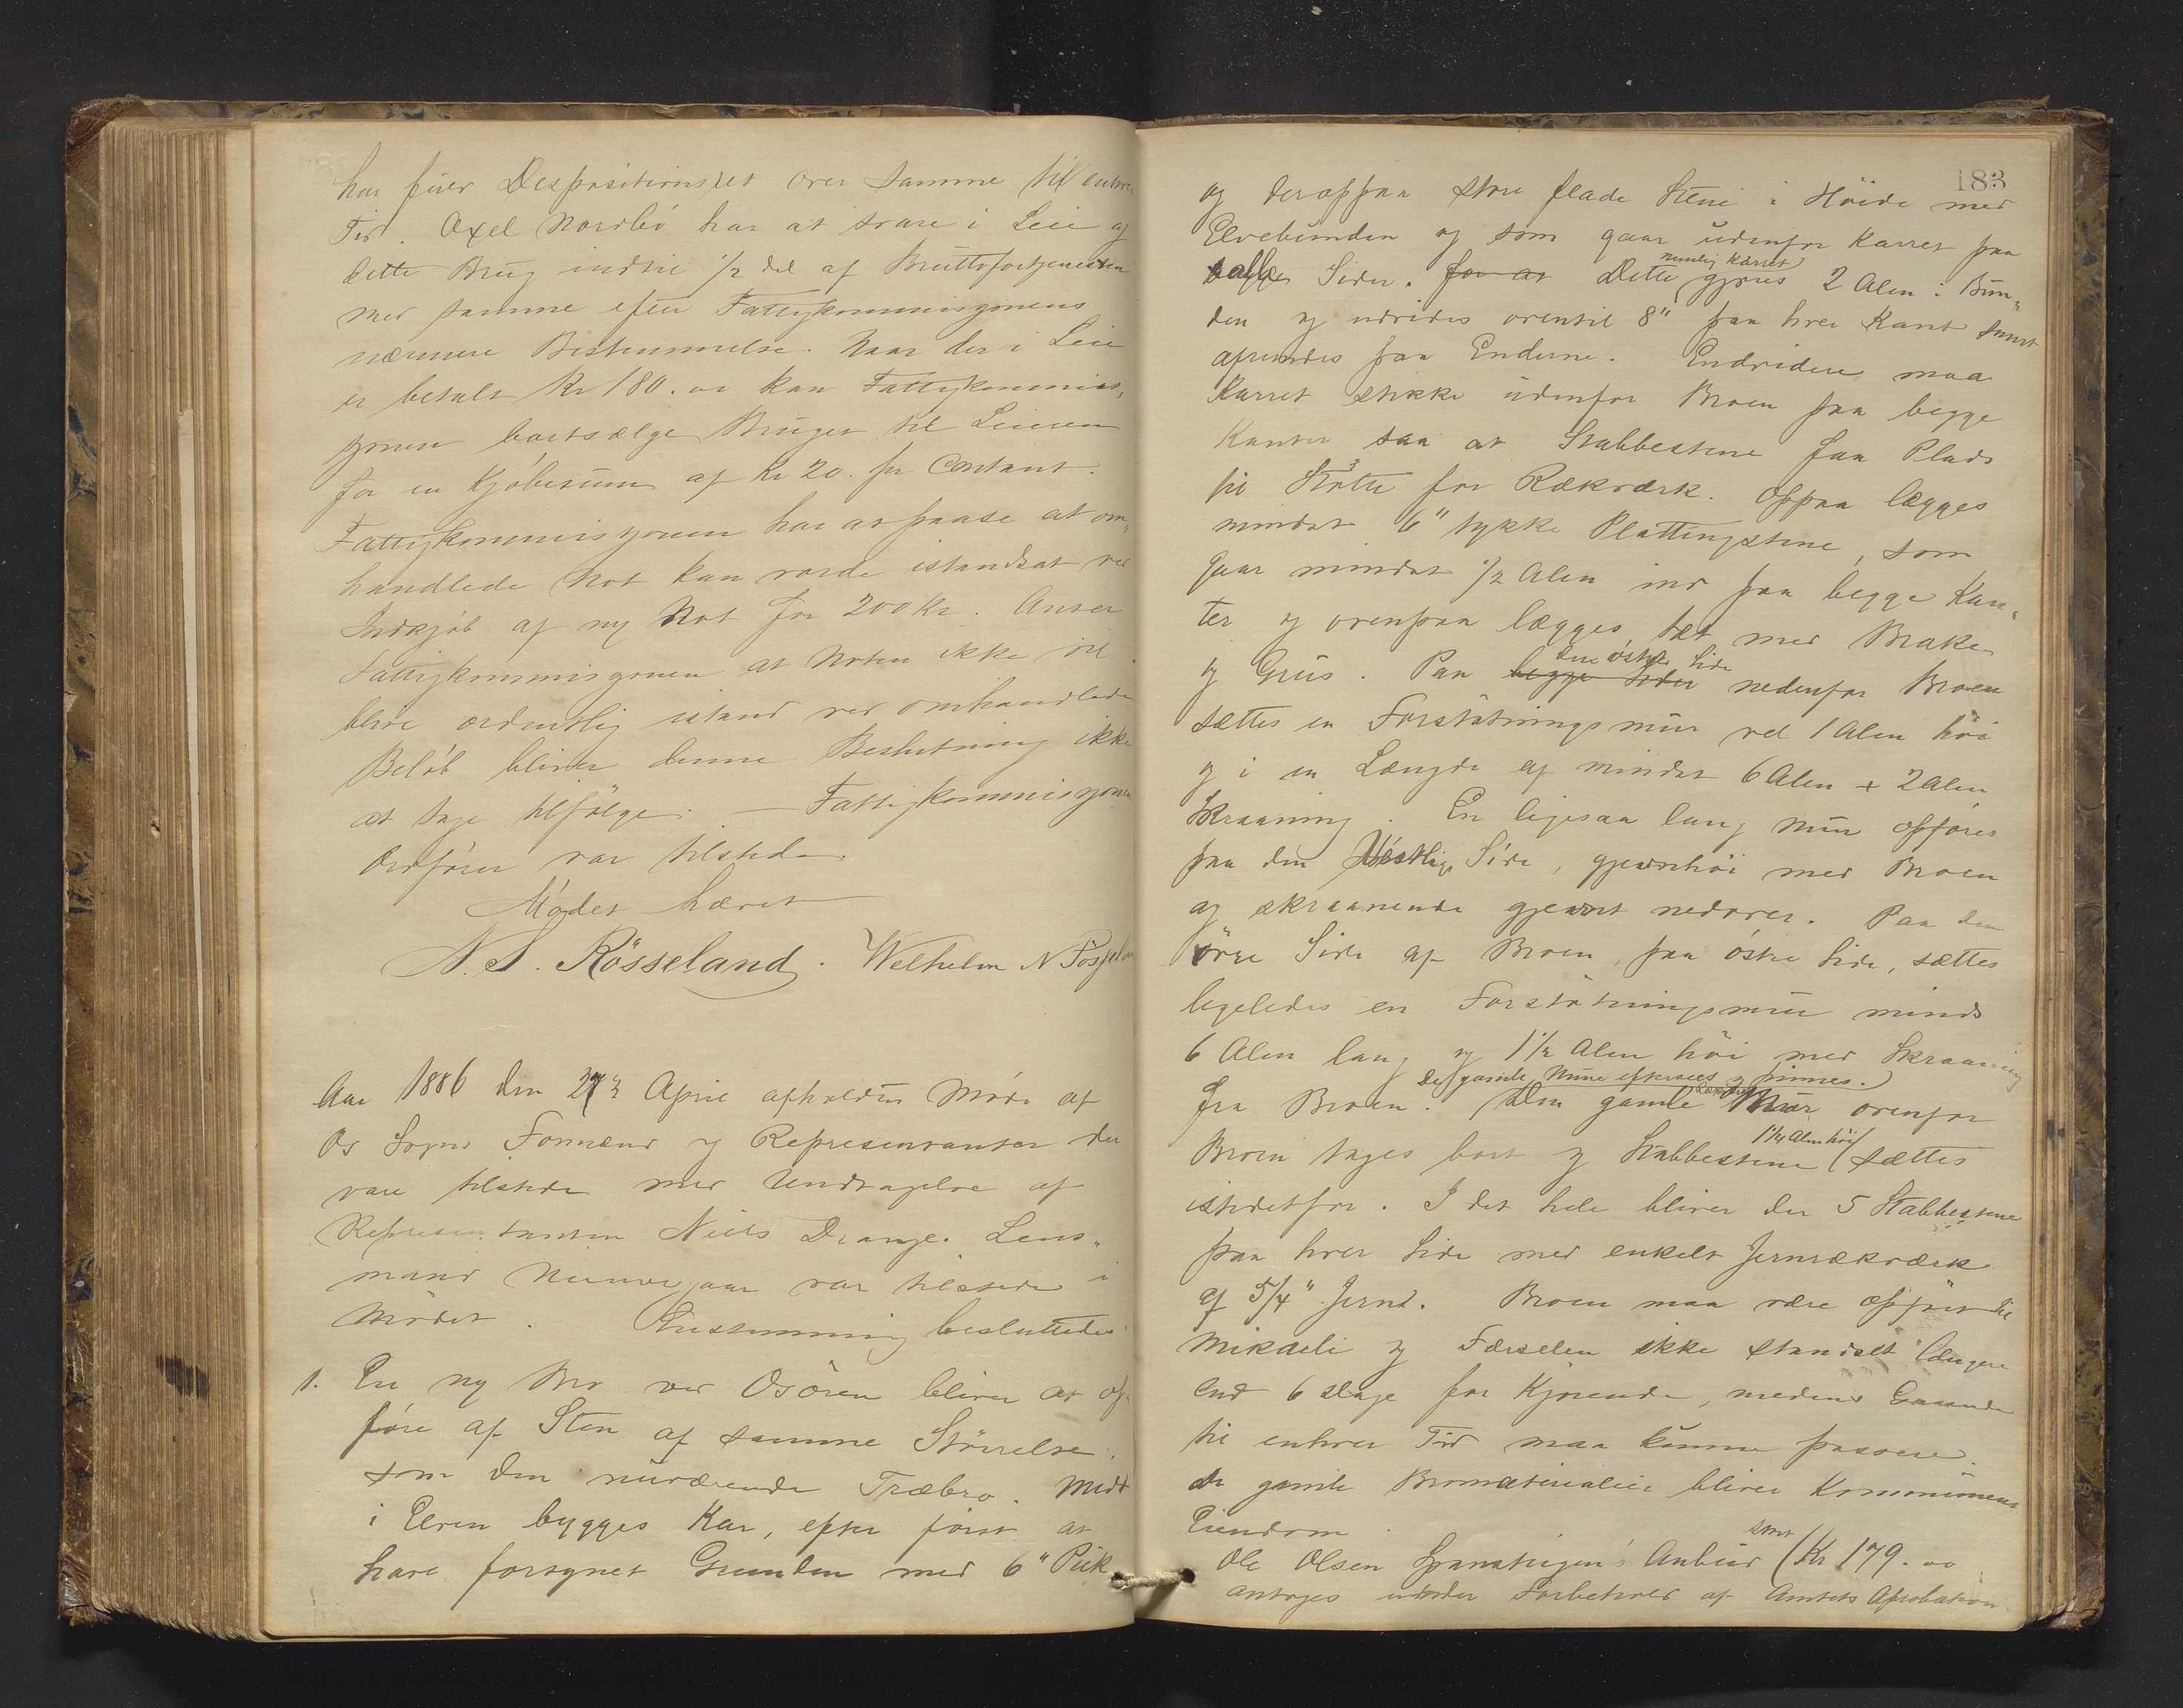 har fuld Despositionsret over samme til enhver
Tid. Axel Nordbö har at svare i Leie af
dette Brug indtil 1/2 del af Bruttofortjenesten
med samme efter Fattigkommisjonens
nærmere Bestemmelse. Naar der i Leie
er betalt Kr 180.oo kan Fattigkommis„
jonen bortsælge Bruget til Leieren
for en Kjöbesum af Kr 20. pr Contant.
Fattigkommisjonen har at paase at om„
handlede Not kan vorde istandsat ved
Indkjöb af ny Not for 200 Kr. Anser
Fattigkommisjonen at Noten ikke vil
blive ordentlig istand ved omhandlede
Belöb bliver denne Beslutning ikke
at tage tilfölge. — Fattigkommisjonens
Ordförer var tilstede.
Mödet hævet
N. S. Rösseland. Welhelm N
Aar 1886 den 27 April afholdtes Möde af
Os Sogns Formænd og Representanter der
vare tilstede med Undtagelse af
Representanten Niels Drange. Lens„
mand var tilstede i
Mödet. Enstemmig besluttedes
1. En ny Bro ved Osören bliver at op„
före af Sten af samme Störrelse
som den nuværende Træbro. Midt
i Elven bygges Kar, efter först at
have forsynet Grunden med 6" Pæk
183
og deroppaa store flade Stene i Höide med
Elvebunden og som gaar udenfor Karret paa
alle Sider. for at Dette nemlig Karret gjöres 2 Alen i Bun„
den og udvides oventil 8" paa hver Kant samt
afrundes paa Enderne. Endvidere maa
Karret stikke udenfor Broen paa begge
Kanter saa at Stabbestene faa Plads
til Stötte for Rækværk. Oppaa lægges
mindst 6" tykke Plattingstene, som
gaar mindst 1/2 Alen ind paa begge Kan„
ter og ovenpaa lægges tæt med Brake
og Grus. Paa begge Sider den östre Side nedenfor Broen
sættes en Forstötningsmur ved 1 Alen höi
og i en Længde af mindst 6 Alen + 2 Alen
Skraaning. En ligesaa lang Mur opföres
paa den Vestlige Side, gjevnhöi med Broen
og skraanende gjevnt nedover. Paa den
övre Side af Broen, paa östre Side, sættes
ligeledes en Forstötningsmur minds
6 Alen lang og 1 1/2 Alen höi med Skraaning
fra Broen. De gamle Mure eftersees og pinnes. Den gamle Mur ovenfor
Broen tages bort og Stabbestene (1 1/4 Alen höi) sættes
istedetfor. I det hele bliver der 5 Stabbestene
paa hver Side med enkelt Jernrækværk
af 5/4" Jern. Broen maa være opfört til
Mikaeli og Færselen ikke standset længere
end 6 Dage for Kjörende, medens Gaaende
til enhver Tid maa kunne passere.
de gamle Bromaterialier bliver Kommunens
Eiendom.
Ole Olsen Anbud stort (Kr 179.oo
antages under Forbehold af Amtets Aprobation